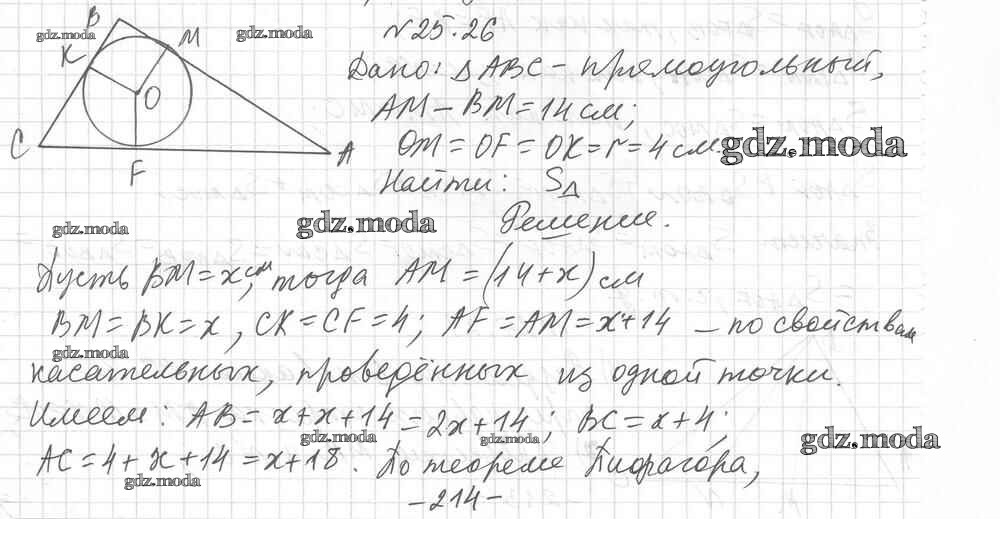 №25.26
Дано: △ABC – прямоугольный,
AM – BM = 14 см;
OM = OF = OK = r = 4 см.
Найти: S△
Решение.
Пусть BM = x см, тогда AM = (14+x) см
BM = BK = x, CK = CF = 4; AF = AM = x+14 – по свойствам
касательных, проведённых из одной точки.
Имеем: AB = x+x+14 = 2x+14; BC = x+4;
AC = 4+x+14 = x+18. По теореме Пифагора,
-214-
B
M
K
O
C
A
F
gdz.moda
gdz.moda
gdz.moda
gdz.moda
gdz.moda
gdz.moda
gdz.moda
gdz.moda
gdz.moda
gdz.moda